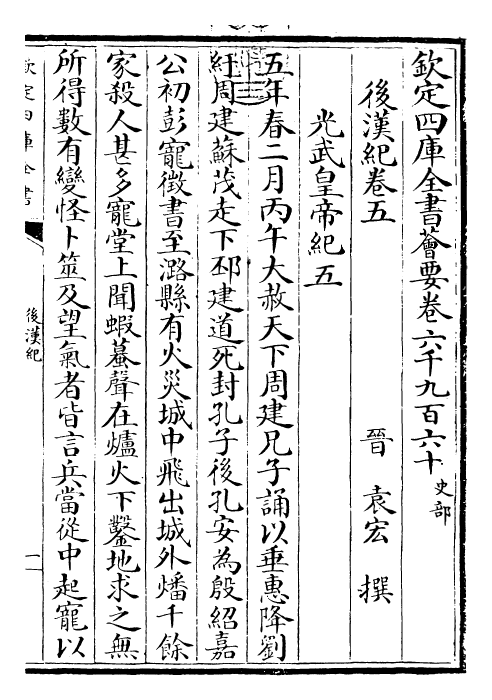 欽定四庫全書薈要卷六千九百六十 史部
後漢紀卷五
晉 袁宏 撰
光武皇帝紀五
五年春二月丙午大赦天下周建兄子誦以垂惠降劉
紆周建蘇茂走下邳建道死封孔子後孔安為殷紹嘉
公初彭寵徴書至潞縣有火災城中飛出城外燔千餘
家殺人甚多寵堂上聞蝦蟇聲在爐火下鑿地求之無
所得數有變怪卜筮及望氣者皆言兵當從中起寵以
欽定四庫全書
後漢紀
一